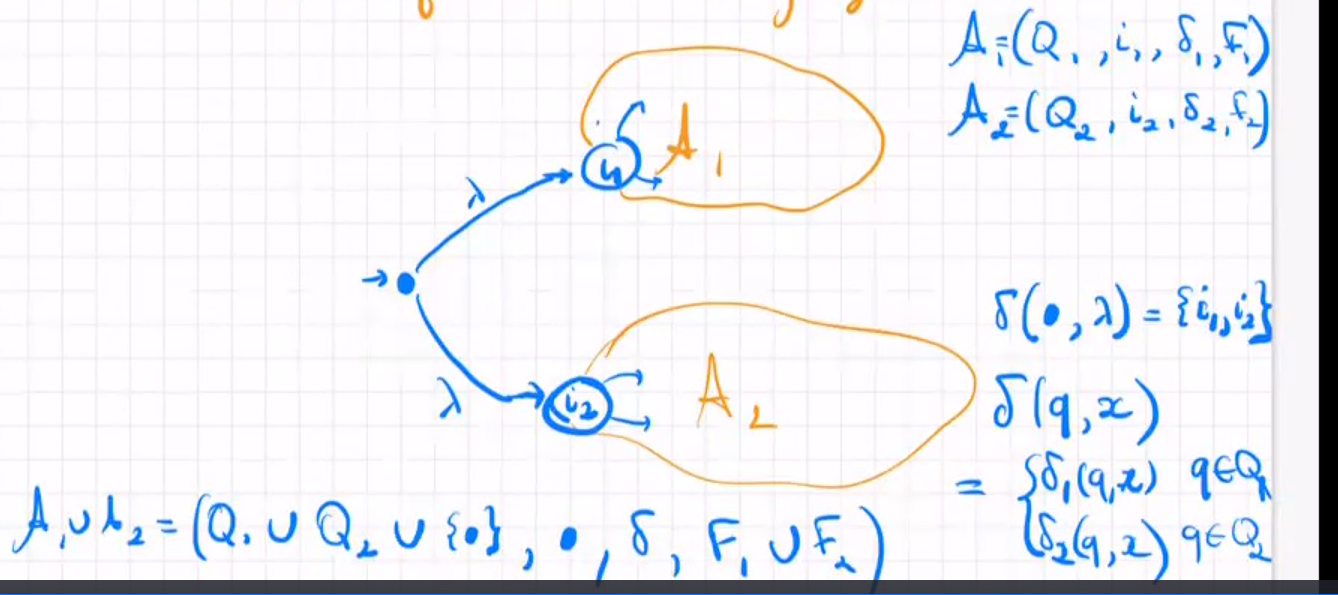 A₁=(Q₁, i₁, δ₁, F₁)
A₂=(Q₂, i₂, δ₂, F₂)
A₁
i₁
λ
δ(•, λ) = {i₁, i₂}
A₂
i₂
λ
δ(q, x)
= { δ₁(q, x) q∈Q₁
δ₂(q, x) q∈Q₂
A₁ ∪ A₂ = (Q₁ ∪ Q₂ ∪ {•}, •, δ, F₁ ∪ F₂)